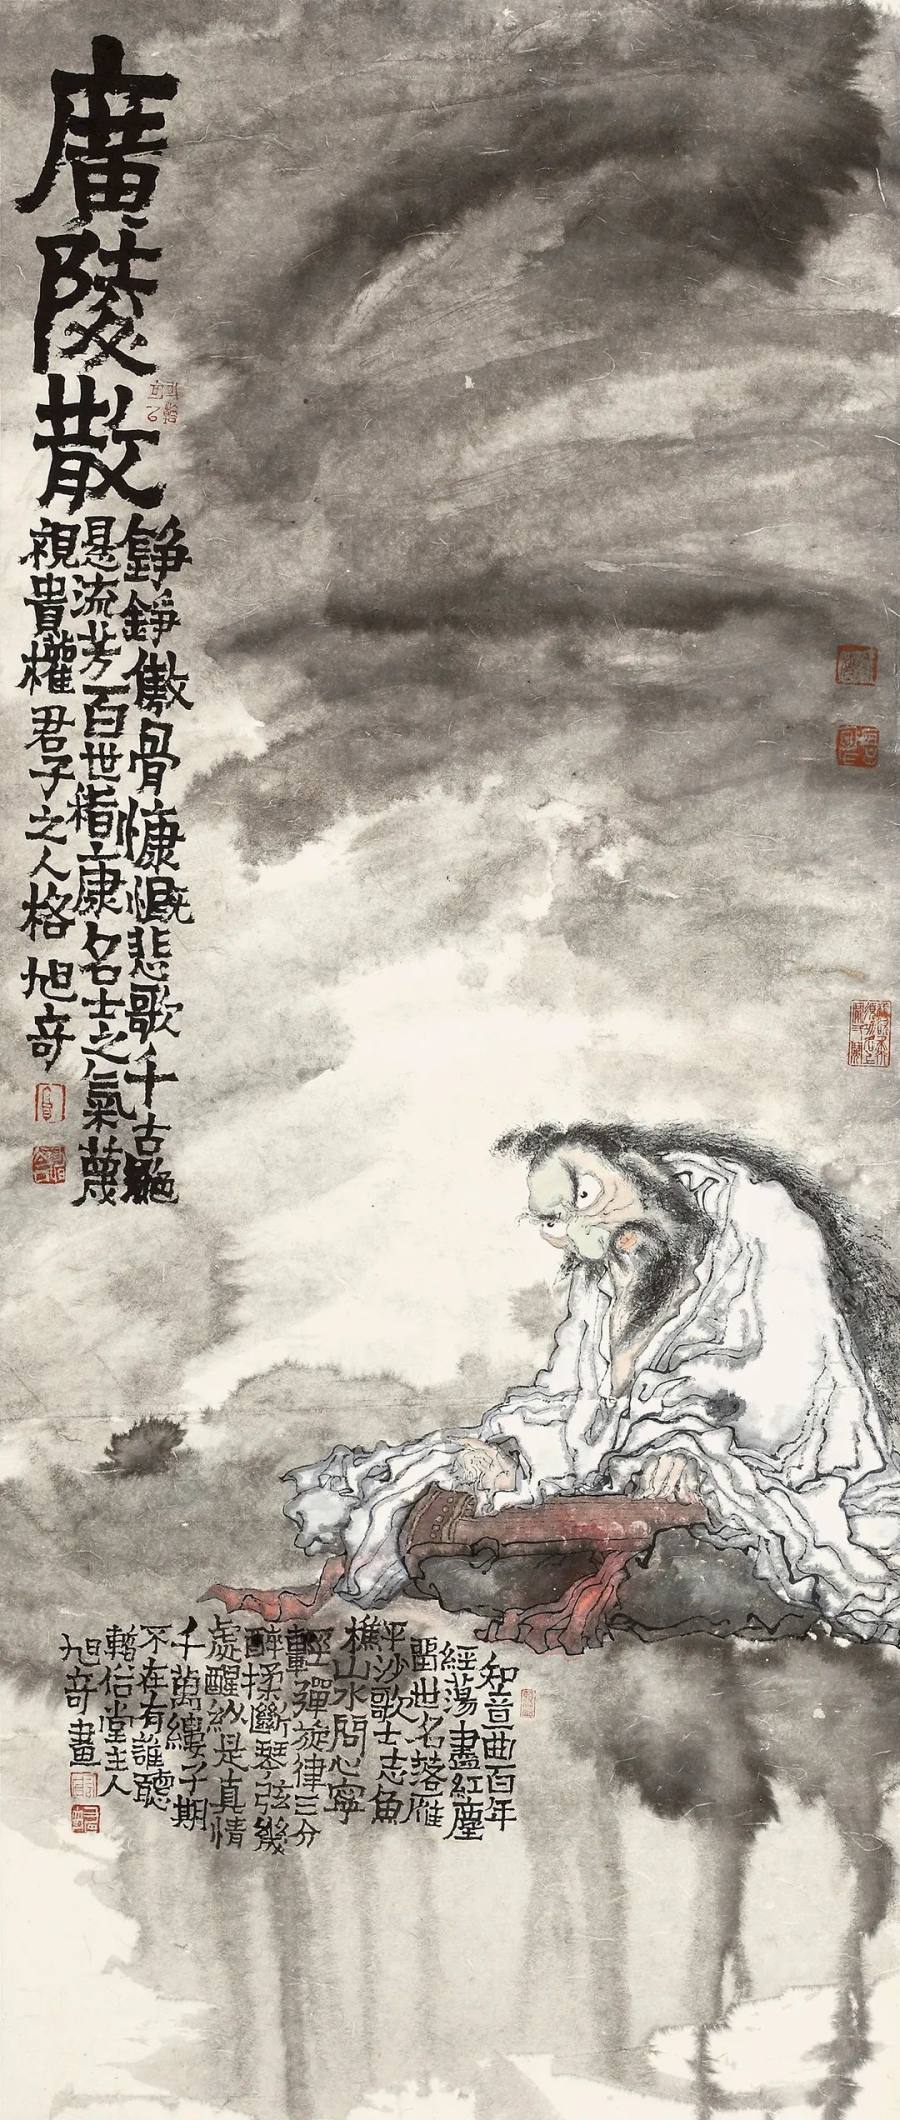 廣陵散
錚錚傲骨慷慨悲歌千古絕
是流芳百世嵇康名士之氣蔑
視貴權君子之人格 旭奇
知音曲百年
經蕩盡紅塵
留世名落雁
平沙歌士志魚
樵山水問心寧
輕彈旋律三分
醉揉斷琴弦幾
處醒縱是真情
千萬縷子期
不在有誰聽
暫俗堂主人
旭奇畫